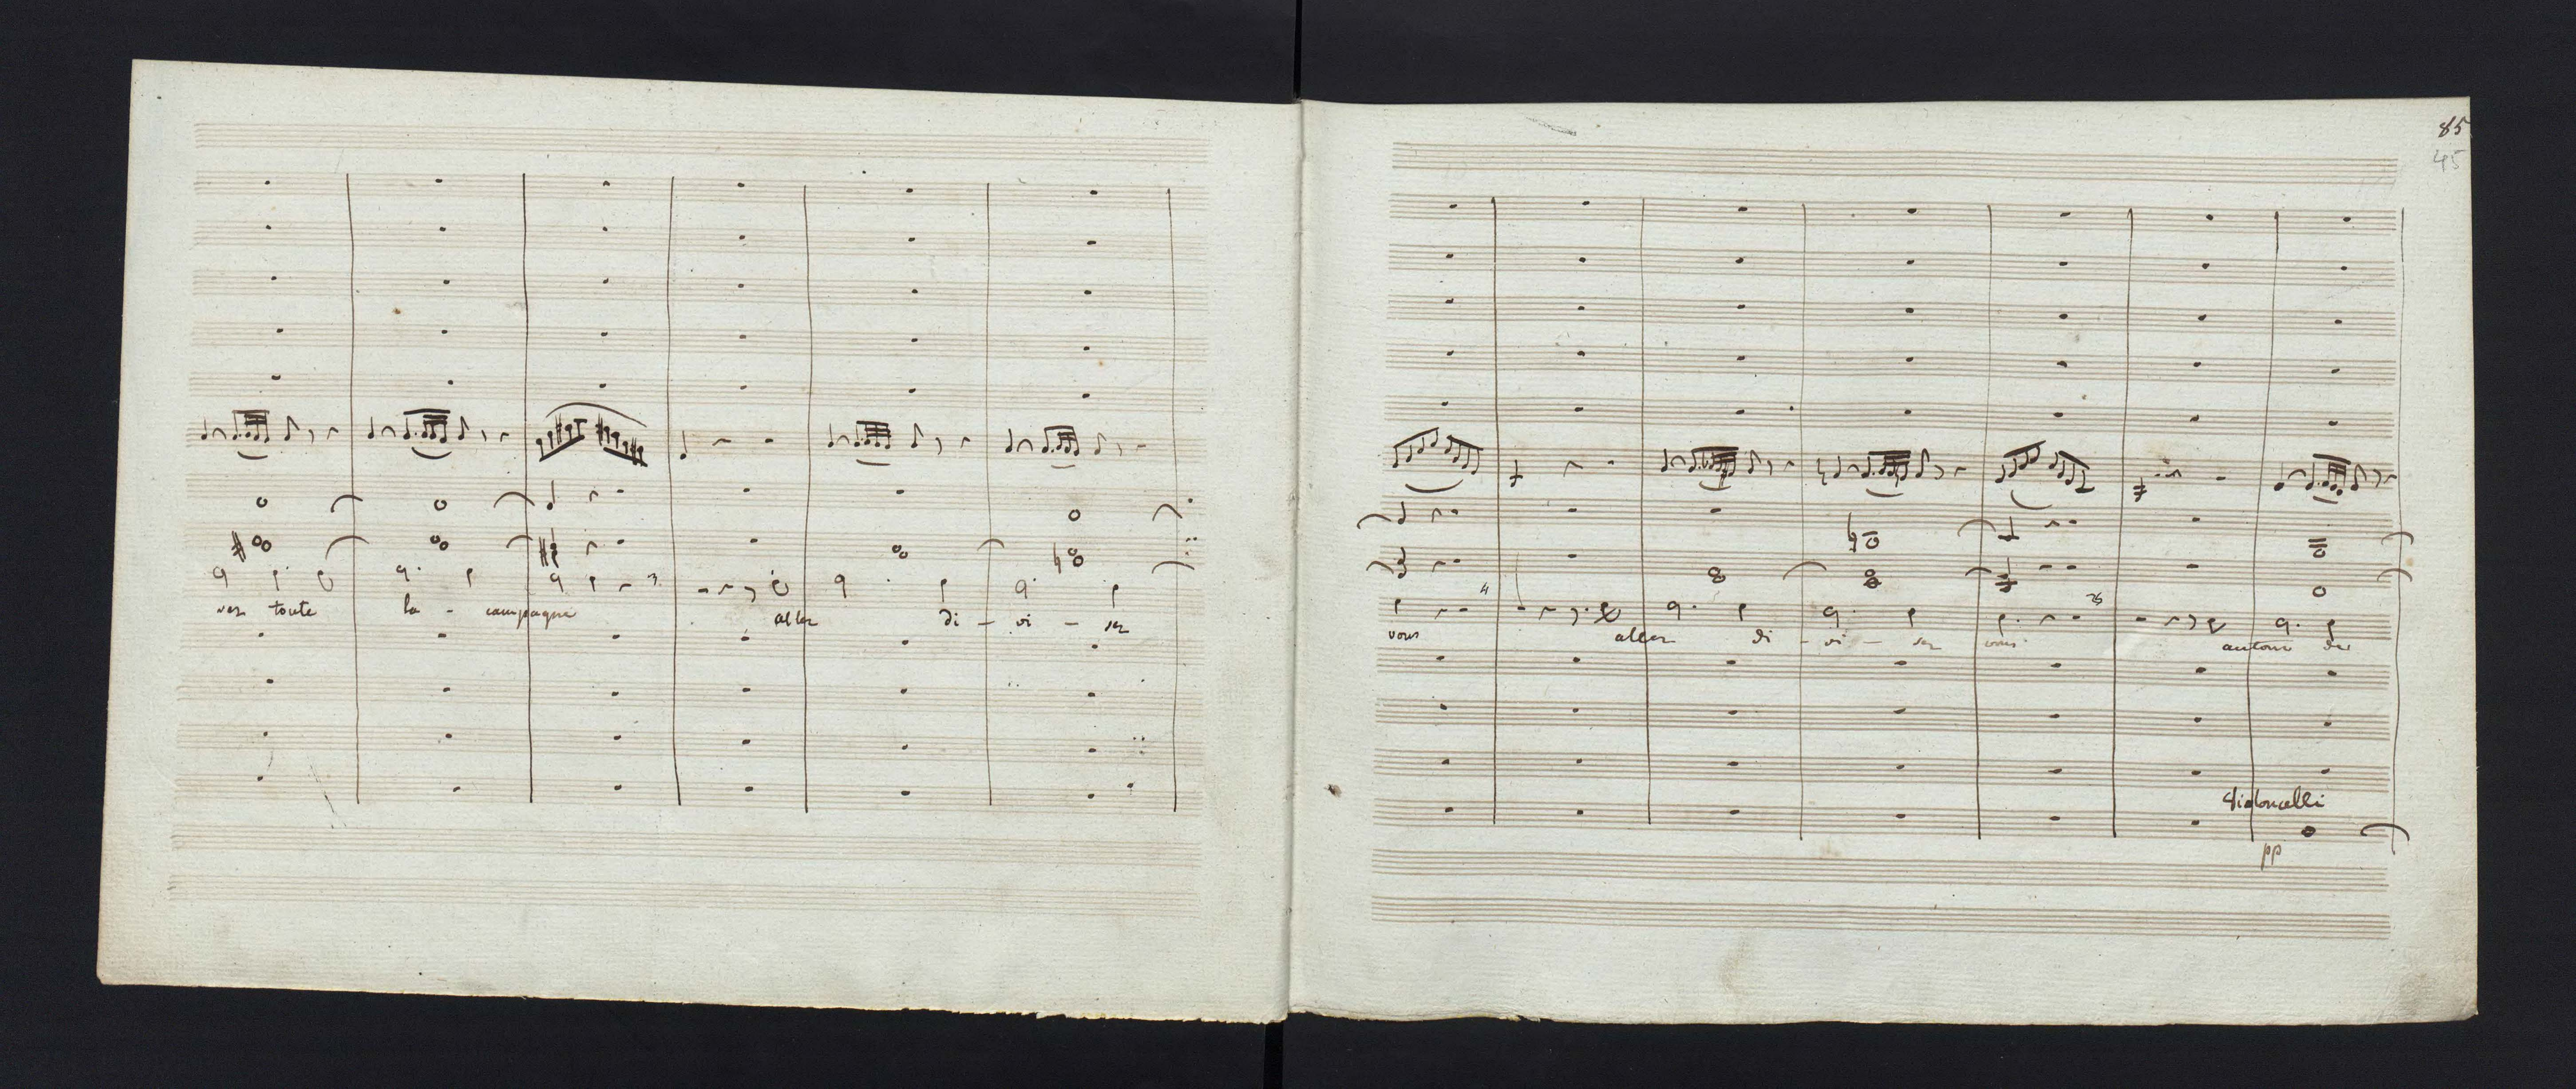 85
45
toute la - campagne allez di - vi - sez
vous allez di - vi - sez vous autour de
Violoncelli
pp